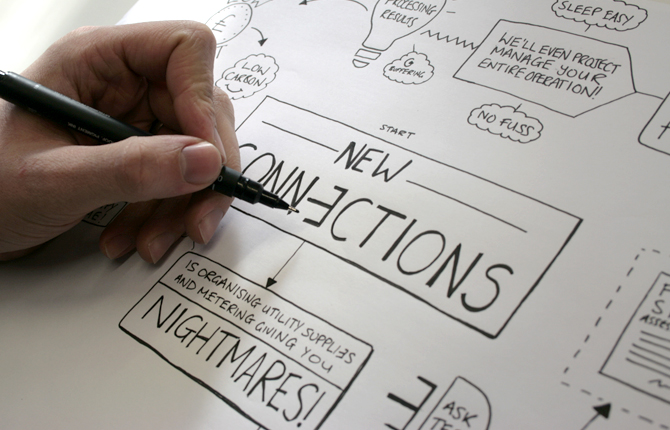 PROCESSING
RESULTS
SLEEP EASY
WE'LL EVEN PROJECT
MANAGE YOUR
ENTIRE OPERATION!
LOW
CARBON
NO FUSS
START
NEW
CONNECTIONS
IS ORGANISING UTILITY SUPPLIES
AND METERING GIVING YOU
NIGHTMARES!
ASK